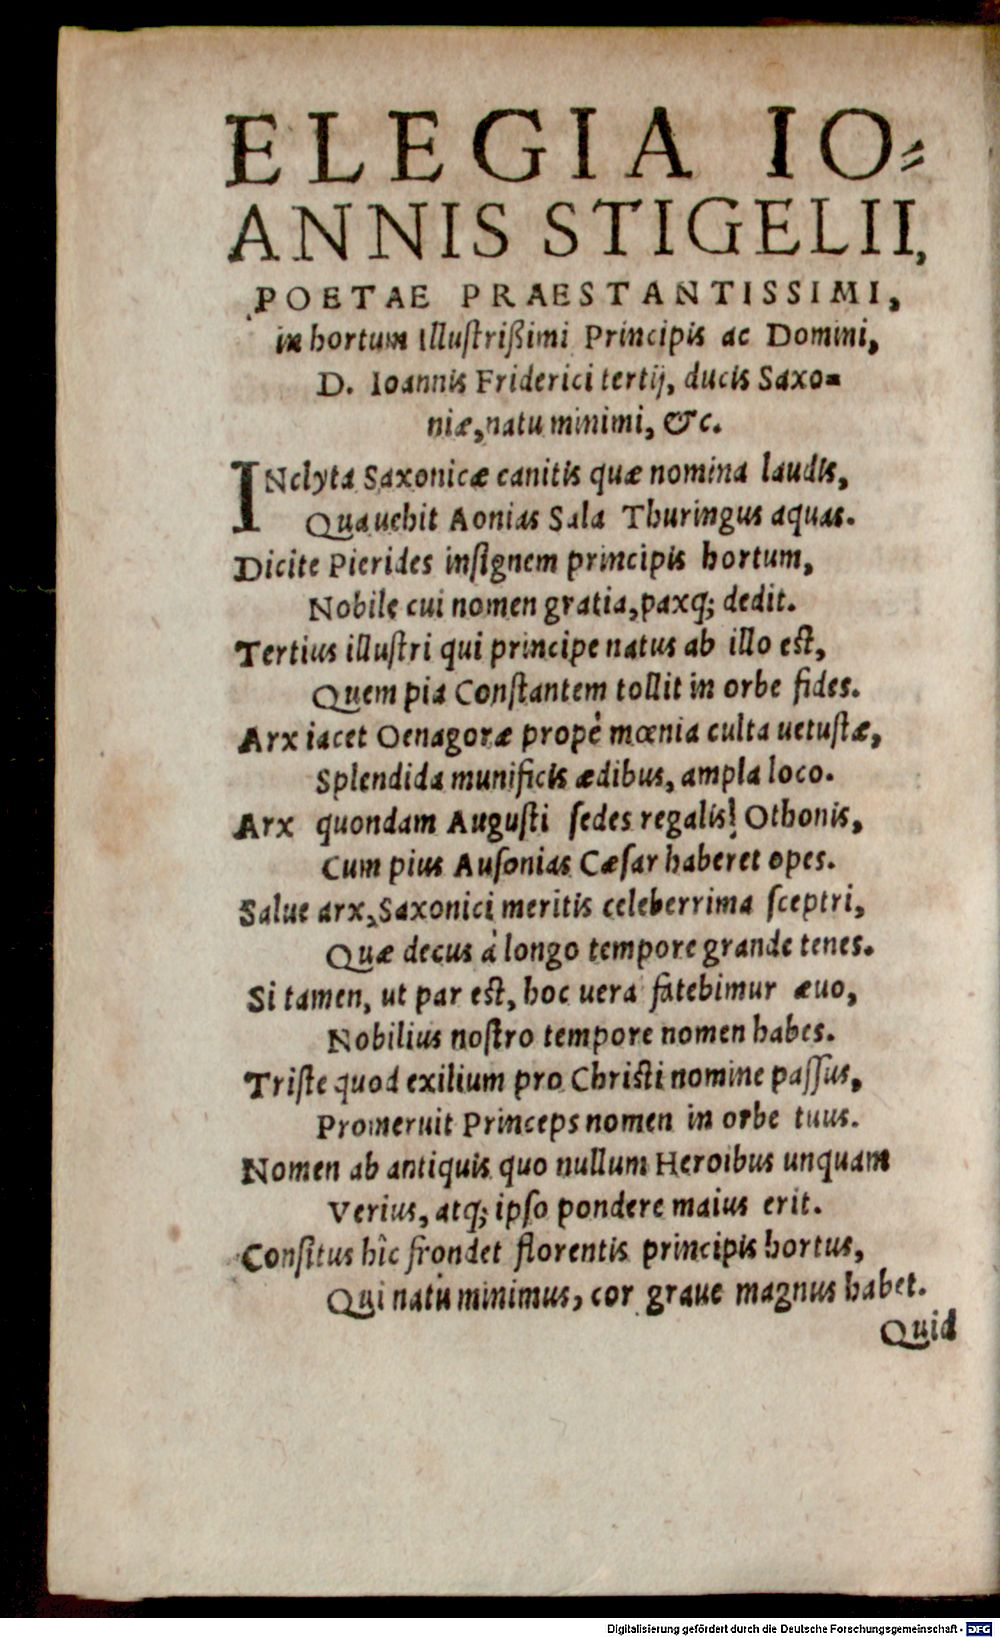 ELEGIA IO⸗
ANNIS STIGELII,
POETAE PRAESTANTISSIMI,
in hortum illuſtriſſimi Principis ac Domini,
D. Ioannis Friderici tertij, ducis Saxo⸗
niæ, natu minimi, &c.
INclyta Saxonicæ canitis quæ nomina laudis,
Qua uehit Aonias Sala Thuringus aquas.
Dicite Pierides inſignem principis hortum,
Nobile cui nomen gratia, paxq; dedit.
Tertius illuſtri qui principe natus ab illo eſt,
Quem pia Conſtantem tollit in orbe fides.
Arx iacet Oenagoræ propè mœnia culta uetuſtæ,
Splendida munificis ædibus, ampla loco.
Arx quondam Auguſti ſedes regalis! Othonis,
Cum pius Auſonias Cæſar haberet opes.
Salue arx, Saxonici meritis celeberrima ſceptri,
Quæ decus à longo tempore grande tenes.
Si tamen, ut par eſt, hoc uera fatebimur æuo,
Nobilius noſtro tempore nomen habes.
Triſte quod exilium pro Chriſti nomine paſſus,
Promeruit Princeps nomen in orbe tuus.
Nomen ab antiquis quo nullum Heroibus unquam
Verius, atq; ipſo pondere maius erit.
Conſitus hîc frondet florentis principis hortus,
Qui natu minimus, cor graue magnus habet.
Quid
Digitalisierung gefördert durch die Deutsche Forschungsgemeinschaft - DFG